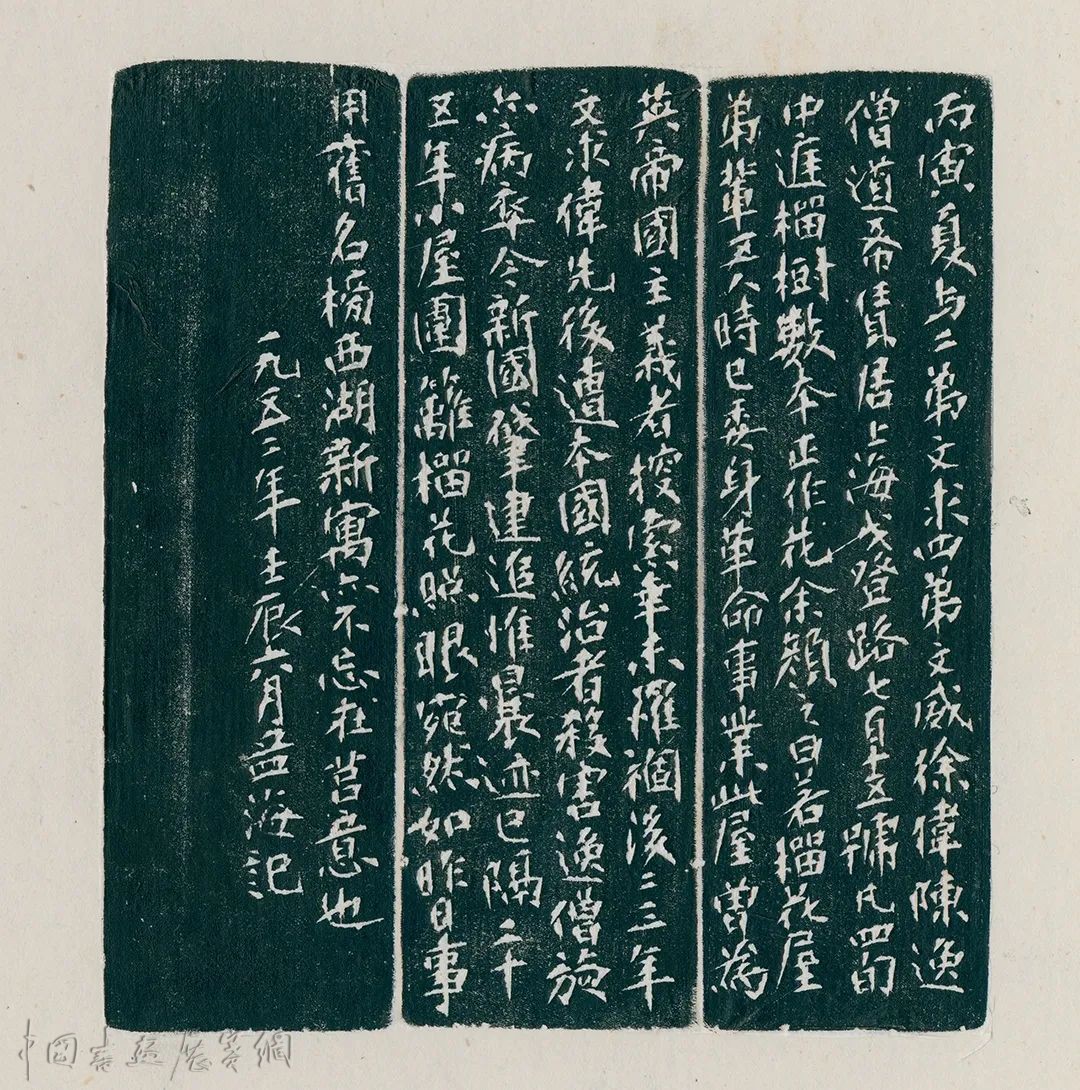 丙寅夏与二弟文求四弟文威徐偉陳逸
僧道希賃居上海戈登路七百十五號凡四間
中庭榴樹數本正作花余顏之曰若榴花屋
弟輩五人時已委身革命事業此屋曾為
英帝國主義者搜索幸未罹禍後二三年
文求偉先後遭本國統治者殺害逸僧旋
亦病卒今新國肇建追惟曩迹已隔二十
五年小屋圍籬榴花照眼宛然如昨日事
用舊名榜西湖新寓亦不忘在莒意也
一九五二年壬辰六月孟海記
中国書法展賽網